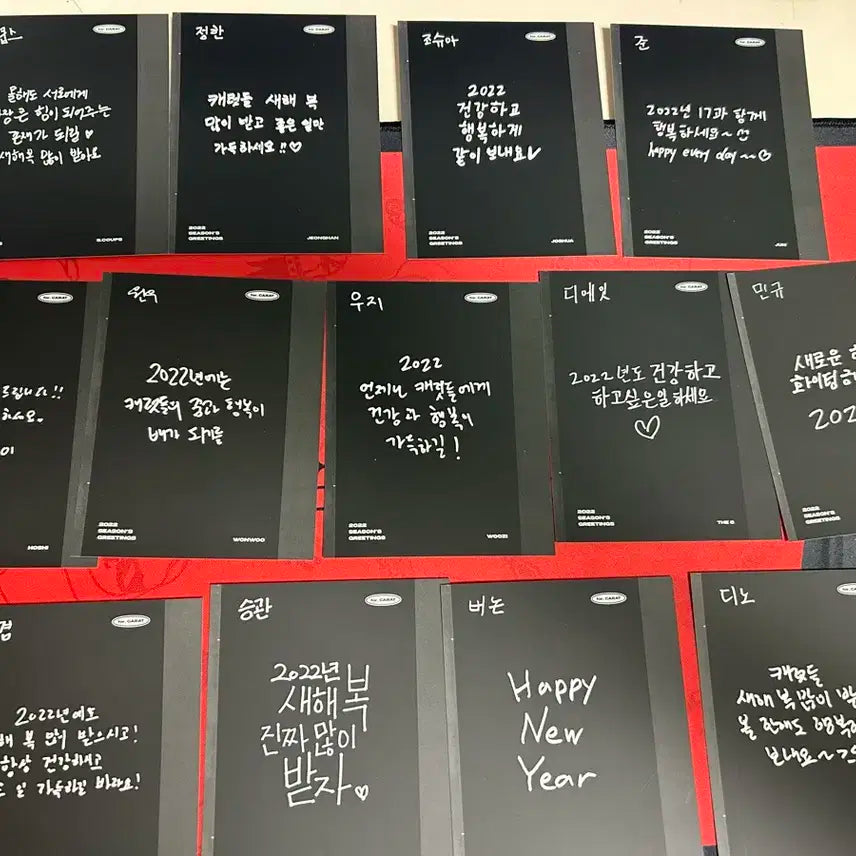 쿱스
for. CARAT
올해도 서로에게
가장 큰 힘이 되어주는
존재가 되길 ♡
새해복 많이 받아요
S.COUPS
정한
for. CARAT
캐럿들 새해 복
많이 받고 좋은 일만
가득하세요!!♡
2022
SEASON'S
GREETINGS
JEONGHAN
조슈아
for. CARAT
2022
건강하고
행복하게
같이 보내요
2022
SEASON'S
GREETINGS
JOSHUA
준
for. CARAT
2022년 17과 함께
행복하세요~
happy every day ~~
2022
SEASON'S
GREETINGS
JUN
for. CARAT
드립니다!!
하세요.
HOSHI
원우
for. CARAT
2022년에는
캐럿들의 꿈과 행복이
배가 되기를
2022
SEASON'S
GREETINGS
WONWOO
우지
for. CARAT
2022
언제나 캐럿들에게
건강과 행복이
가득하길!
2022
SEASON'S
GREETINGS
WOOZI
디에잇
for. CARAT
2022년도 건강하고
하고싶은일 하세요
♡
2022
SEASON'S
GREETINGS
THE 8
민규
새로운
화이팅
202
2022
SEASON'S
GREETINGS
겸
for. CARAT
2022년에도
해 복 많이 받으시고!
항상 건강하시고
일 가득하길 바라요!
승관
for. CARAT
2022년
새해 복
진짜 많이
받자♡
버논
for. CARAT
Happy
New
Year
디노
for. CARAT
캐럿들
새해 복 많이
올 한해도 행복
보내요~